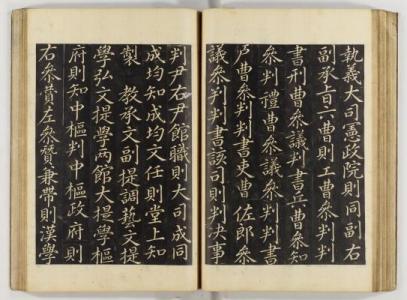 執義大司憲政院則同副右
副承旨六曹則工曹叅判判
書刑曹叅議判書兵曹叅知
叅判禮曹叅議叅判判書
戶曹叅判判書吏曹佐郎叅
議叅判判書該司則判決事
判尹右尹館職則大司成同
成均知成均文任則堂上知
製 教承文副提調藝文提
學弘文提學兩館大提學樞
府則知中樞判中樞政府則
右叅贊左叅贊兼帶則漢學